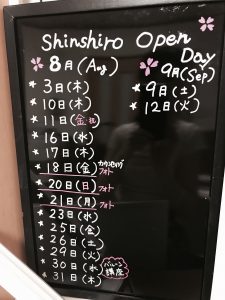 Shinshiro Open Day
8月(Aug)
3日(木)
10日(木)
11日(金・祝)
16日(水)
17日(木)
18日(金) カウンセリング フォト
20日(日) フォト
21日(月) フォト
23日(水)
25日(金)
26日(土)
29日(火)
30日(水)
31日(木)
バルーン講座
9月(Sep)
9日(土)
12日(火)